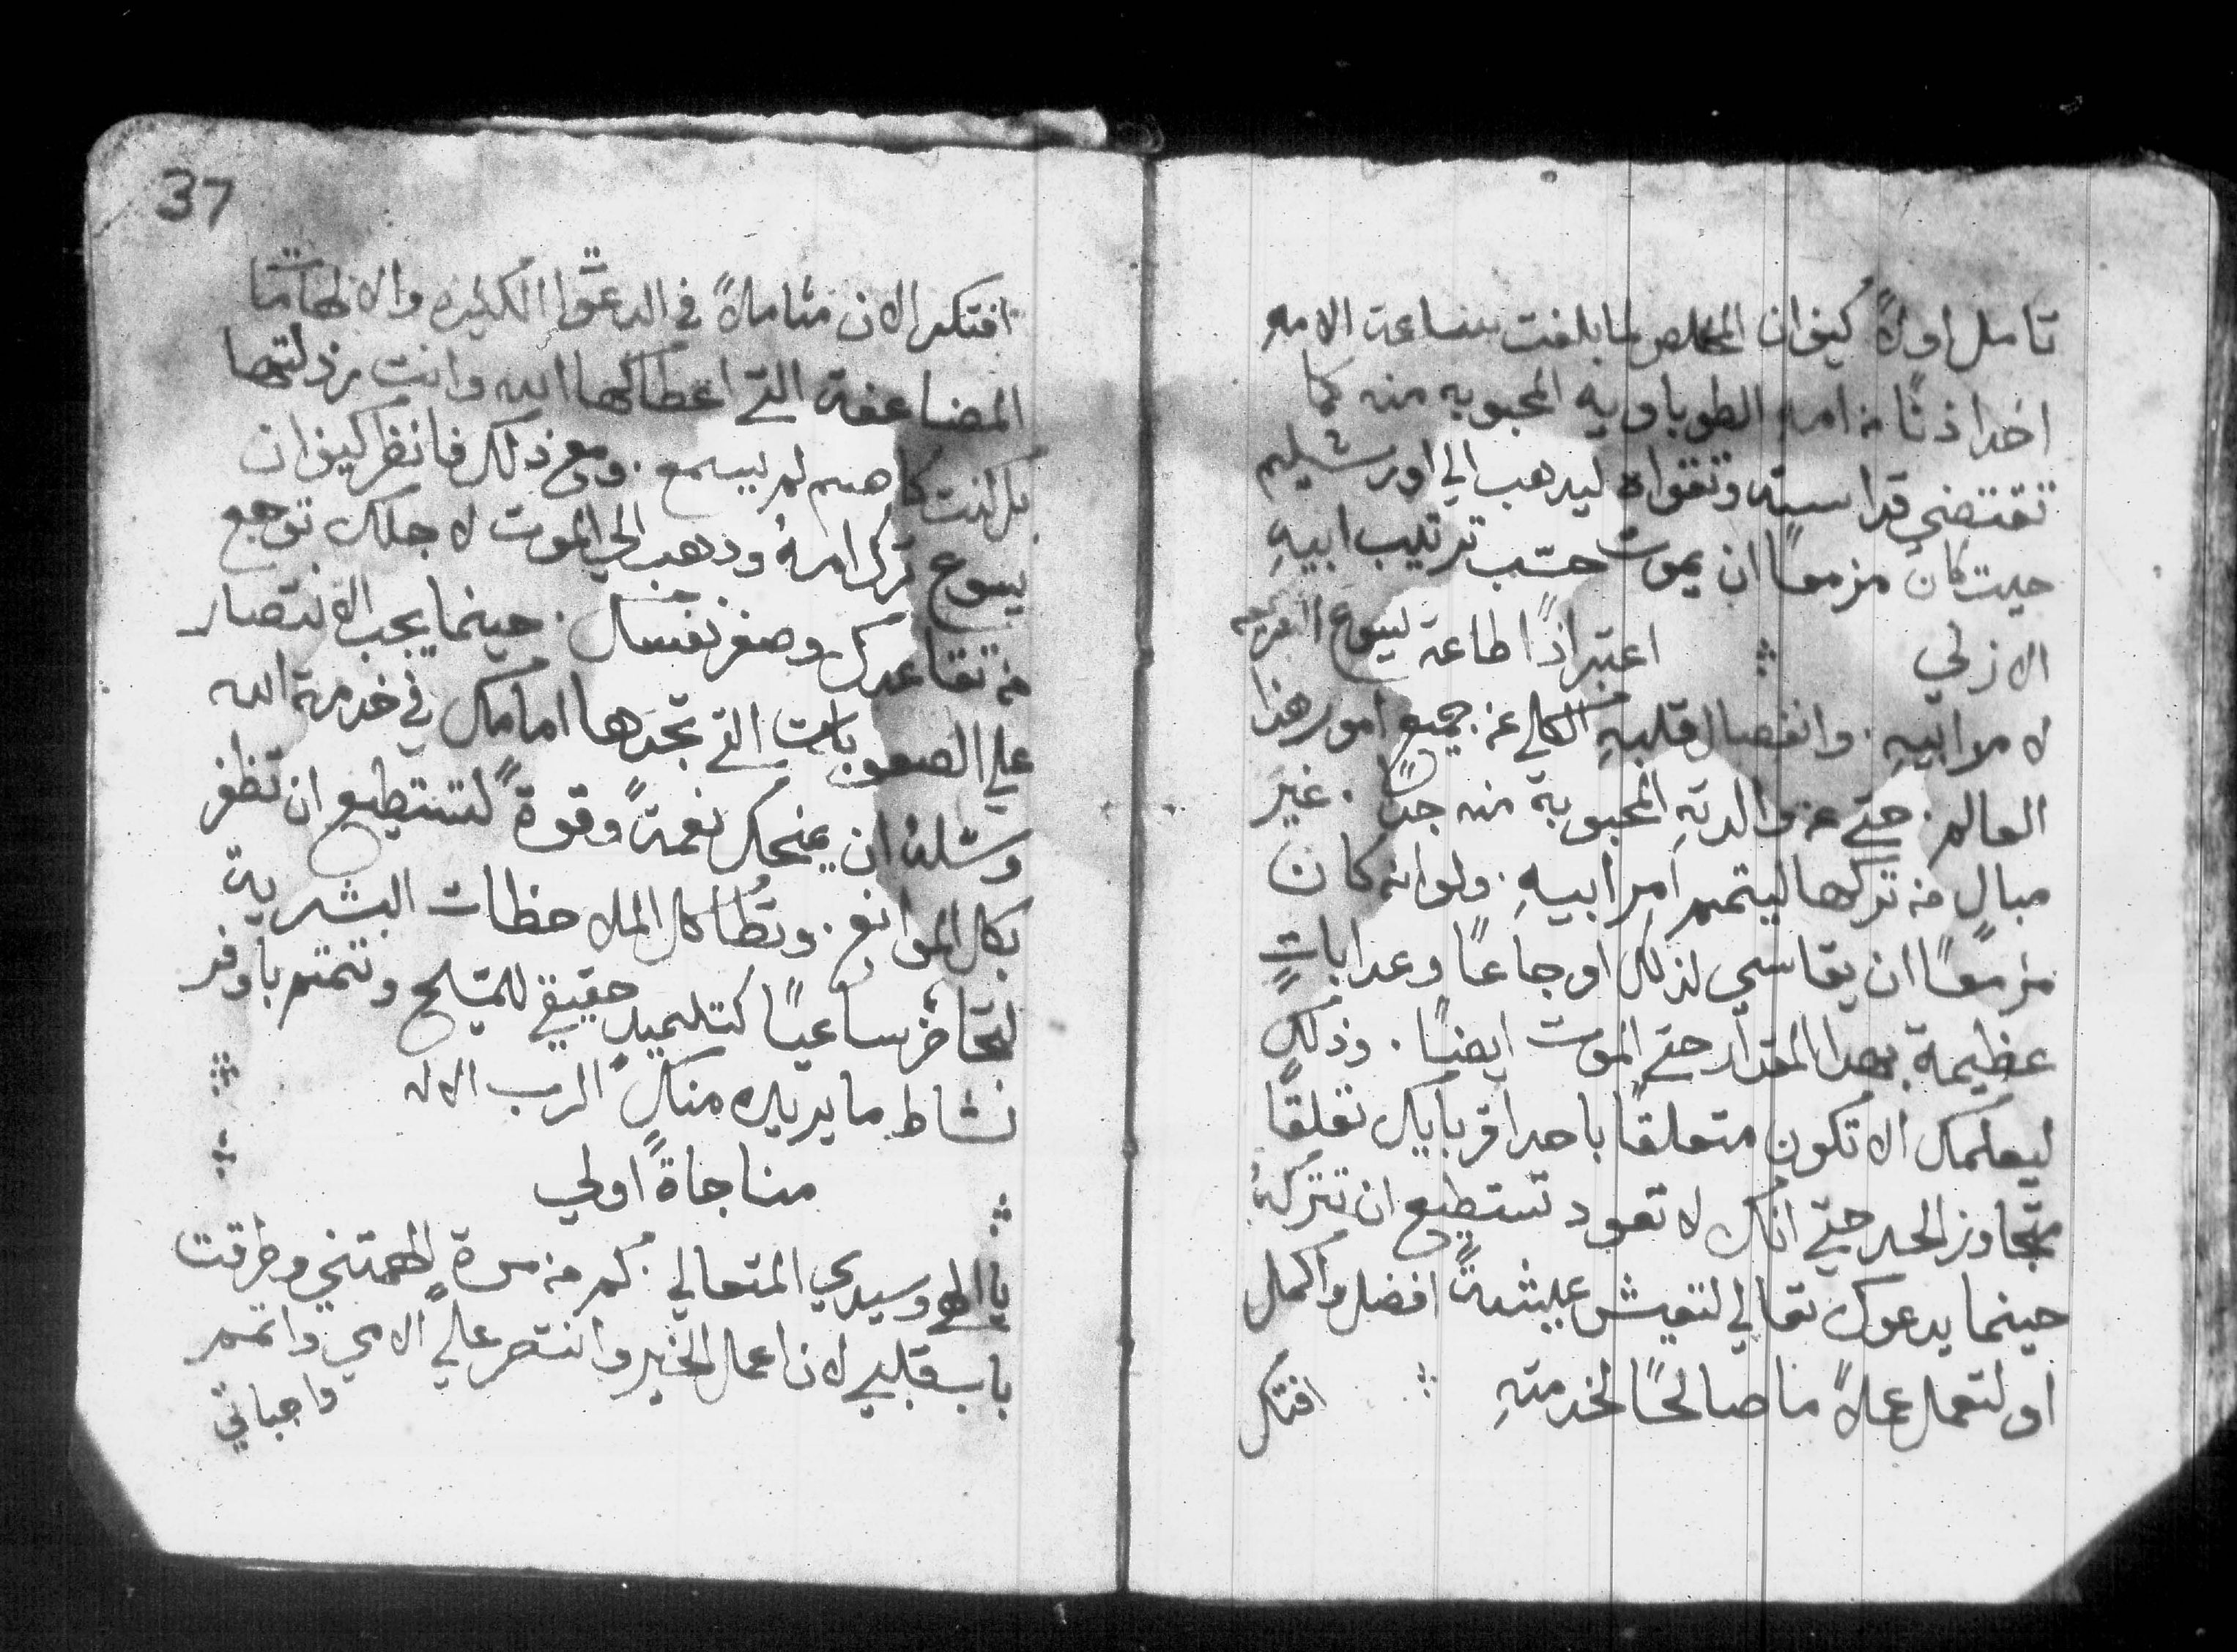 تامل اولاً كيف ان المخلص لما بلغت ساعت الامه
اخد اذنًا من امه الطوباويه المحبوبه منه كما
تقتضي قداسته وتقواه ليدهب الي اورشليم
حيت كان مزمعًا ان يموت حسب ترتيب ابيهِ
الازلي ∴ اعتبر اذًا طاعة يسوع
لامر ابيهِ . وانفصال قلبهِ الكلي عن جميع امور هذا
العالم . حتي عن والدتهِ المحبوبة منه جدًا . غير
مبالٍ من تركها ليتمم امر ابيهِ . ولو انه كان
مزمعًا ان يقاسي لذلك اوجاعًا وعدابات
عظيمة بهدا المقدار حتي الموت ايضًا . وذلك
ليعلمك الا تكون متعلقًا باحد اقربايك تعلقًا
متجاوز الحد حتي انك لا تعود تستطيع ان تتركهُ
حينما يدعوك تعالي لتعيش عيشةً افضل واكمل
او لتعمل عملاً ما صالحًا لخدمتهِ ∴ افتكر
37
افتكر الان متاملاً في الدعوات الكتيره والالهامات
المضاعفة التي اعطاكها الله وانت رذلتها
بل كنت كاصم لم يسمع . ومع ذلك فانظر كيف ان
يسوع ترك امهُ ودهب الي الموت لاجلك توجع
من تقاعدك وصغر نفسك . حينما يجب الانتصار
علي الصعوبات التي تجدها امامك في خدمة الله
وسله ان يمنحك نعمةً وقوةً لتستطيع ان تظفر
بكل الموانع . وتطا كل الملاحظات البشرية
ساعيًا كتلميدٍ حقيقي للمسيح وتتمم باوفر
نشاط ما يريده منك الرب الاله
مناجاةً اولي
يا الهي وسيدي المتعالي . كم من مرة الهمتني وطرقت
باب قلبي لان اعمل الخير وانتصر علي الامي واتمم
واجباتي